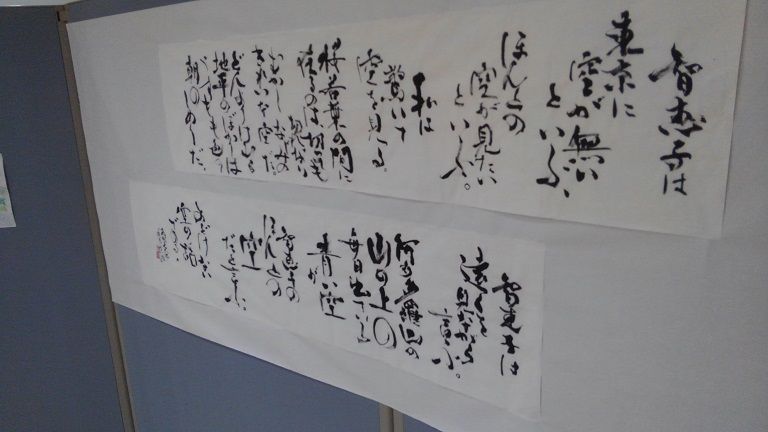 智恵子は
東京に
空が無い
といふ、
ほんとの
空が見たい
といふ。
私は
驚いて
空を見る。
桜若葉の間に
在るのは切つても
切れない
むかしなじみの
きれいな空だ。
どんよりけむる
地平のぼかしは
うすもも色の
朝のしめりだ。
智恵子は
遠くを見ながら
言ふ。
阿多多羅山の
山の上に
毎日出てゐる
青い空
が
智恵子の
ほんとの
空
だといふ。
あどけない
空の話
である。